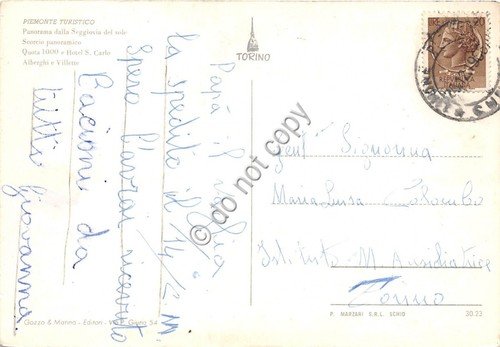 PIEMONTE TURISTICO
Panorama dalla Seggiovia del sole
Scorcio panoramico
Quota 1600 e Hotel S. Carlo
Alberghi e Villette
TORINO
Papà il vaglia
la spedito il 14/2 m
spero l'avrai ricevuto
Bacioni da
tutti
Giovanna
Gent. Signorina
Maria Luisa Colombo
Istituto M. Ausiliatrice
Torino
© do not copy
Gazzo & Marina - Editori - Via Giaria 54
P. MARZARI S.R.L. SCHIO
30.23